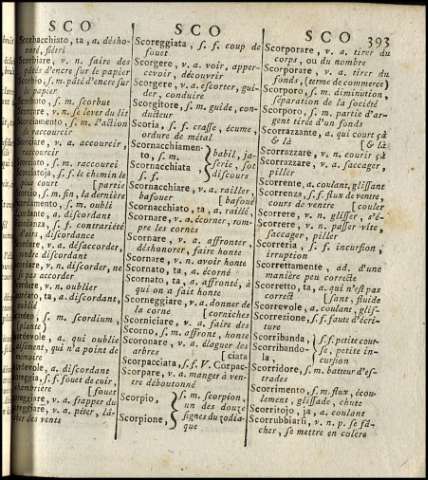 SCO
SCO
SCO
393
Scorbacchiato, ta, a. désho-
noré, flétri
v. n. faire des
pâtés d'encre sur le papier
s. m. pâté d'encre sur
le papier
s. m. scorbut
v. n. se lever du lit
s. m. l'action
raccourcir
v. a. accourcir,
raccourcir
s. m. raccourci
s. f. le chemin le
plus court [partie
s. m. fin, la derniere
s. m. oubli
a. discordant
s. f. contrariété
discordance
v. a. désaccorder,
rendre discordant
v. n. discorder, ne
pas accorder
v. n. oublier
ta, a. discordant,
oublié
s. m. scordium,
(plante)
a. qui oublie
aisément, qui n'a point de
mémoire
a. discordant
s. f. fouet de cuir,
[fouet
v. a. frapper du
v. a. péter, lâ-
cher des vents
Scoreggiata, s. f. coup de
fouet
Scorgere, v. a. voir, apper-
cevoir, découvrir
Scorgere, v. a. escorter, gui-
der, conduire
Scorgitore, s. m. guide, con-
ducteur
Scoria, s. f. crasse, écume,
ordure de métal
Scornacchiamen-
to, s. m. } babil, ja-
Scornacchiata } serie, sot
s. f. } discours
Scornacchiare, v. a. railler,
bafouer [bafoué
Scornacchiato, ta, a. raillé,
Scornare, v. a. écorner, rom-
pre les cornes
Scornare, v. a. affronter,
déshonorer, faire honte
Scornare, v. n. avoir honte
Scornato, ta, a. écorné
Scornato, ta, a. affronté, à
qui on a fait honte
Scorneggiare, v. a. donner de
la corne [corniches
Scorniciare, v. a. faire des
Scorno, s. m. affront, honte
Scoronare, v. a. élaguer les
arbres [ciata
Scorpacciata, s. f. V. Corpac-
Scorpare, v. a. manger à ven-
tre déboutonné
Scorpio, } s. m. scorpion,
un des douze
Scorpione, } signes du zodia-
que
Scorporare, v. a. tirer du
corps, ou du nombre
Scorporare, v. a. tirer du
fonds, (terme de commerce)
Scorporo, s. m. diminution,
séparation de la société
Scorporo, s. m. partie d'ar-
gent tirée d'un fonds
Scorrazzante, a. qui court çà
& là [& là
Scorrazzare, v. n. courir çà
Scorrazzare, v. a. saccager,
piller
Scorrente, a. coulant, glissant
Scorrenza, s. f. flux de ventre,
cours de ventre [couler
Scorrere, v. n. glisser, s'é-
Scorrere, v. n. passer vîte,
saccager, piller
Scorreria, s. f. incursion,
irruption
Scorrettamente, ad. d'une
maniere peu correcte
Scorretto, ta, a. qui n'est pas
correct [sant, fluide
Scorrevole, a. coulant, glis-
Scorrezione, s. f. faute d'écri-
ture
Scorribanda, } s. f. petite cour-
Scorribando- } se, petite in-
la, } cursion
Scorridore, s. m. batteur d'es-
trades
Scorrimento, s. m. flux, écou-
lement, glissade, chute
Scorritojo, ja, a. coulant
Scorrubbiarsi, v. n. p. se fâ-
cher, se mettre en colere